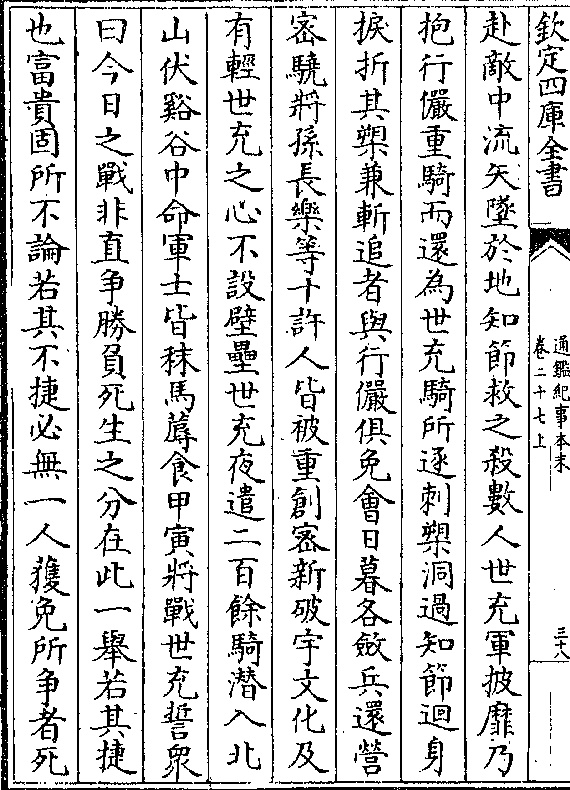 欽定四庫全書
通鑑紀事本末
卷二十七上
三十八
赴敵中流矢墜於地知節救之殺數人世充軍披靡乃
抱行儼重騎而還為世充騎所逐刺槊洞過知節迴身
捩折其槊兼斬追者與行儼俱免會日暮各斂兵還營
宻驍將孫長樂等十許人皆被重創宻新破宇文化及
有輕世充之心不設壁壘世充夜遣二百餘騎潛入北
山伏谿谷中命軍士皆秣馬蓐食甲寅將戰世充誓衆
曰今日之戰非直爭勝負死生之分在此一舉若其捷
也富貴固所不論若其不捷必無一人獲免所爭者死